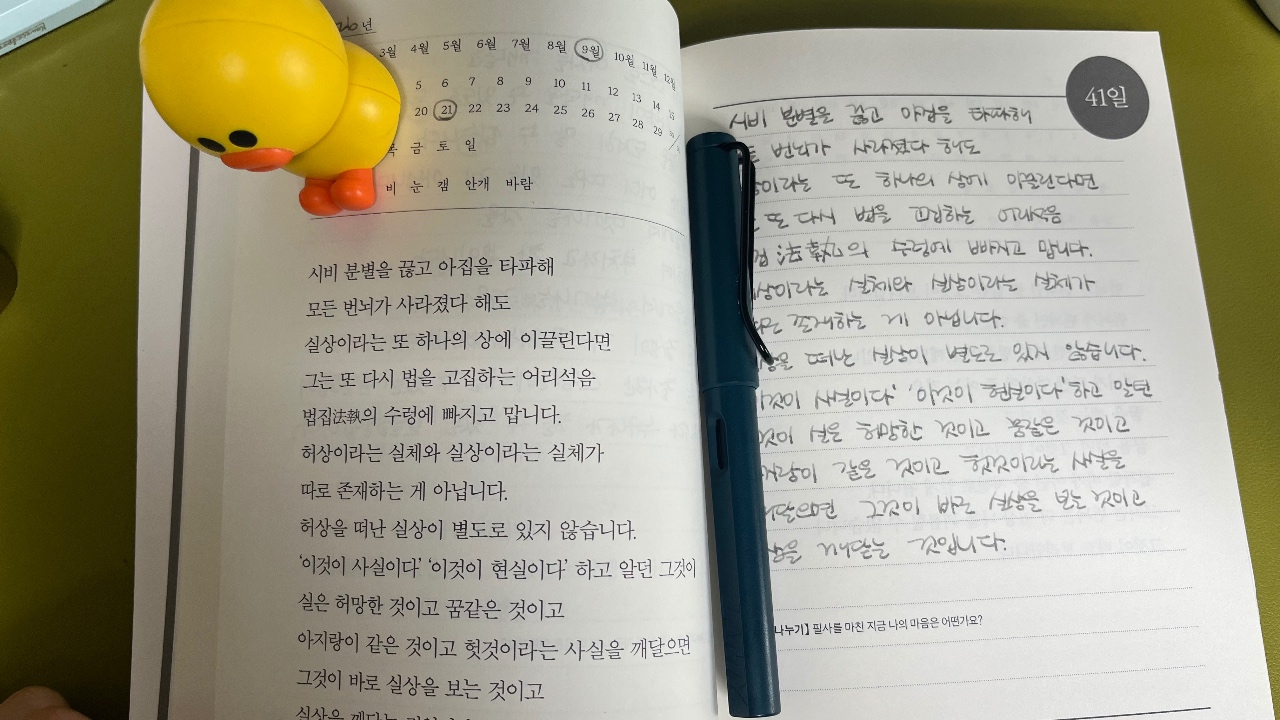 년
3월 4월 5월 6월 7월 8월 9월 10월 11월 12월
5 6 7 8 9 10 11 12 13 14 15
20 21 22 23 24 25 26 27 28 29
금 토 일
비 눈 갬 안개 바람
시비 분별을 끊고 아집을 타파해
모든 번뇌가 사라졌다 해도
실상이라는 또 하나의 상에 이끌린다면
그는 또 다시 법을 고집하는 어리석음
법집法執의 수렁에 빠지고 맙니다.
허상이라는 실체와 실상이라는 실체가
따로 존재하는 게 아닙니다.
허상을 떠난 실상이 별도로 있지 않습니다.
‘이것이 사실이다’ ‘이것이 현실이다’ 하고 알던 그것이
실은 허망한 것이고 꿈같은 것이고
아지랑이 같은 것이고 헛것이라는 사실을 깨달으면
그것이 바로 실상을 보는 것이고
41일
시비 분별을 끊고 아집을 타파해
번뇌가 사라졌다 해도
또 하나의 상에 이끌린다면
또 다시 법을 고집하는 어리석음
法執의 수렁에 빠지고 맙니다.
실체와 실상이라는 실체가
존재하는 게 아닙니다.
떠난 실상이 별도로 있지 않습니다.
사실이다', '이것이 현실이다' 하고 알던
실은 허망한 것이고 꿈같은 것이고
같은 것이고 헛것이라는 사실을
그것이 바로 실상을 보는 것이고
것입니다.
나누기] 필사를 마친 지금 나의 마음은 어떤가요?